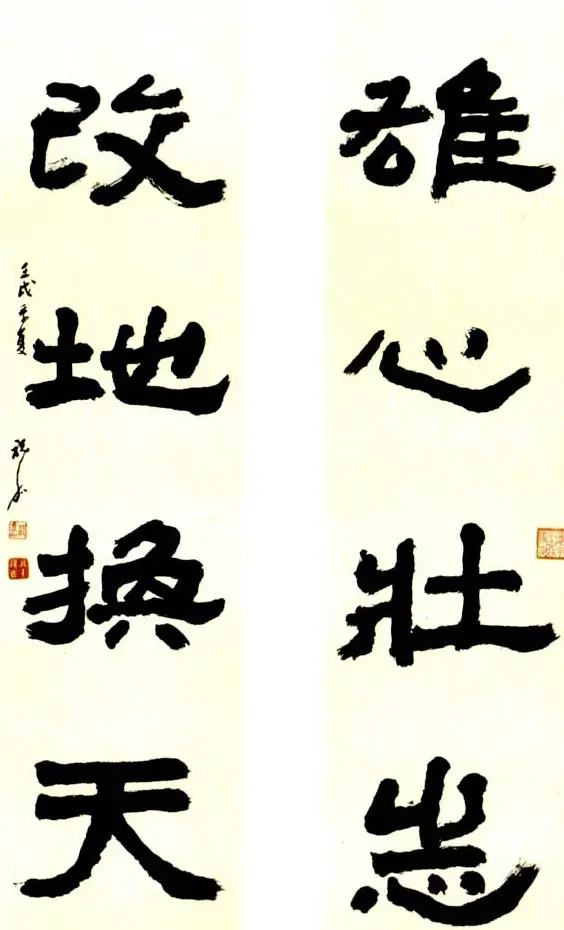 雄心壮志
改地换天
壬戌季夏